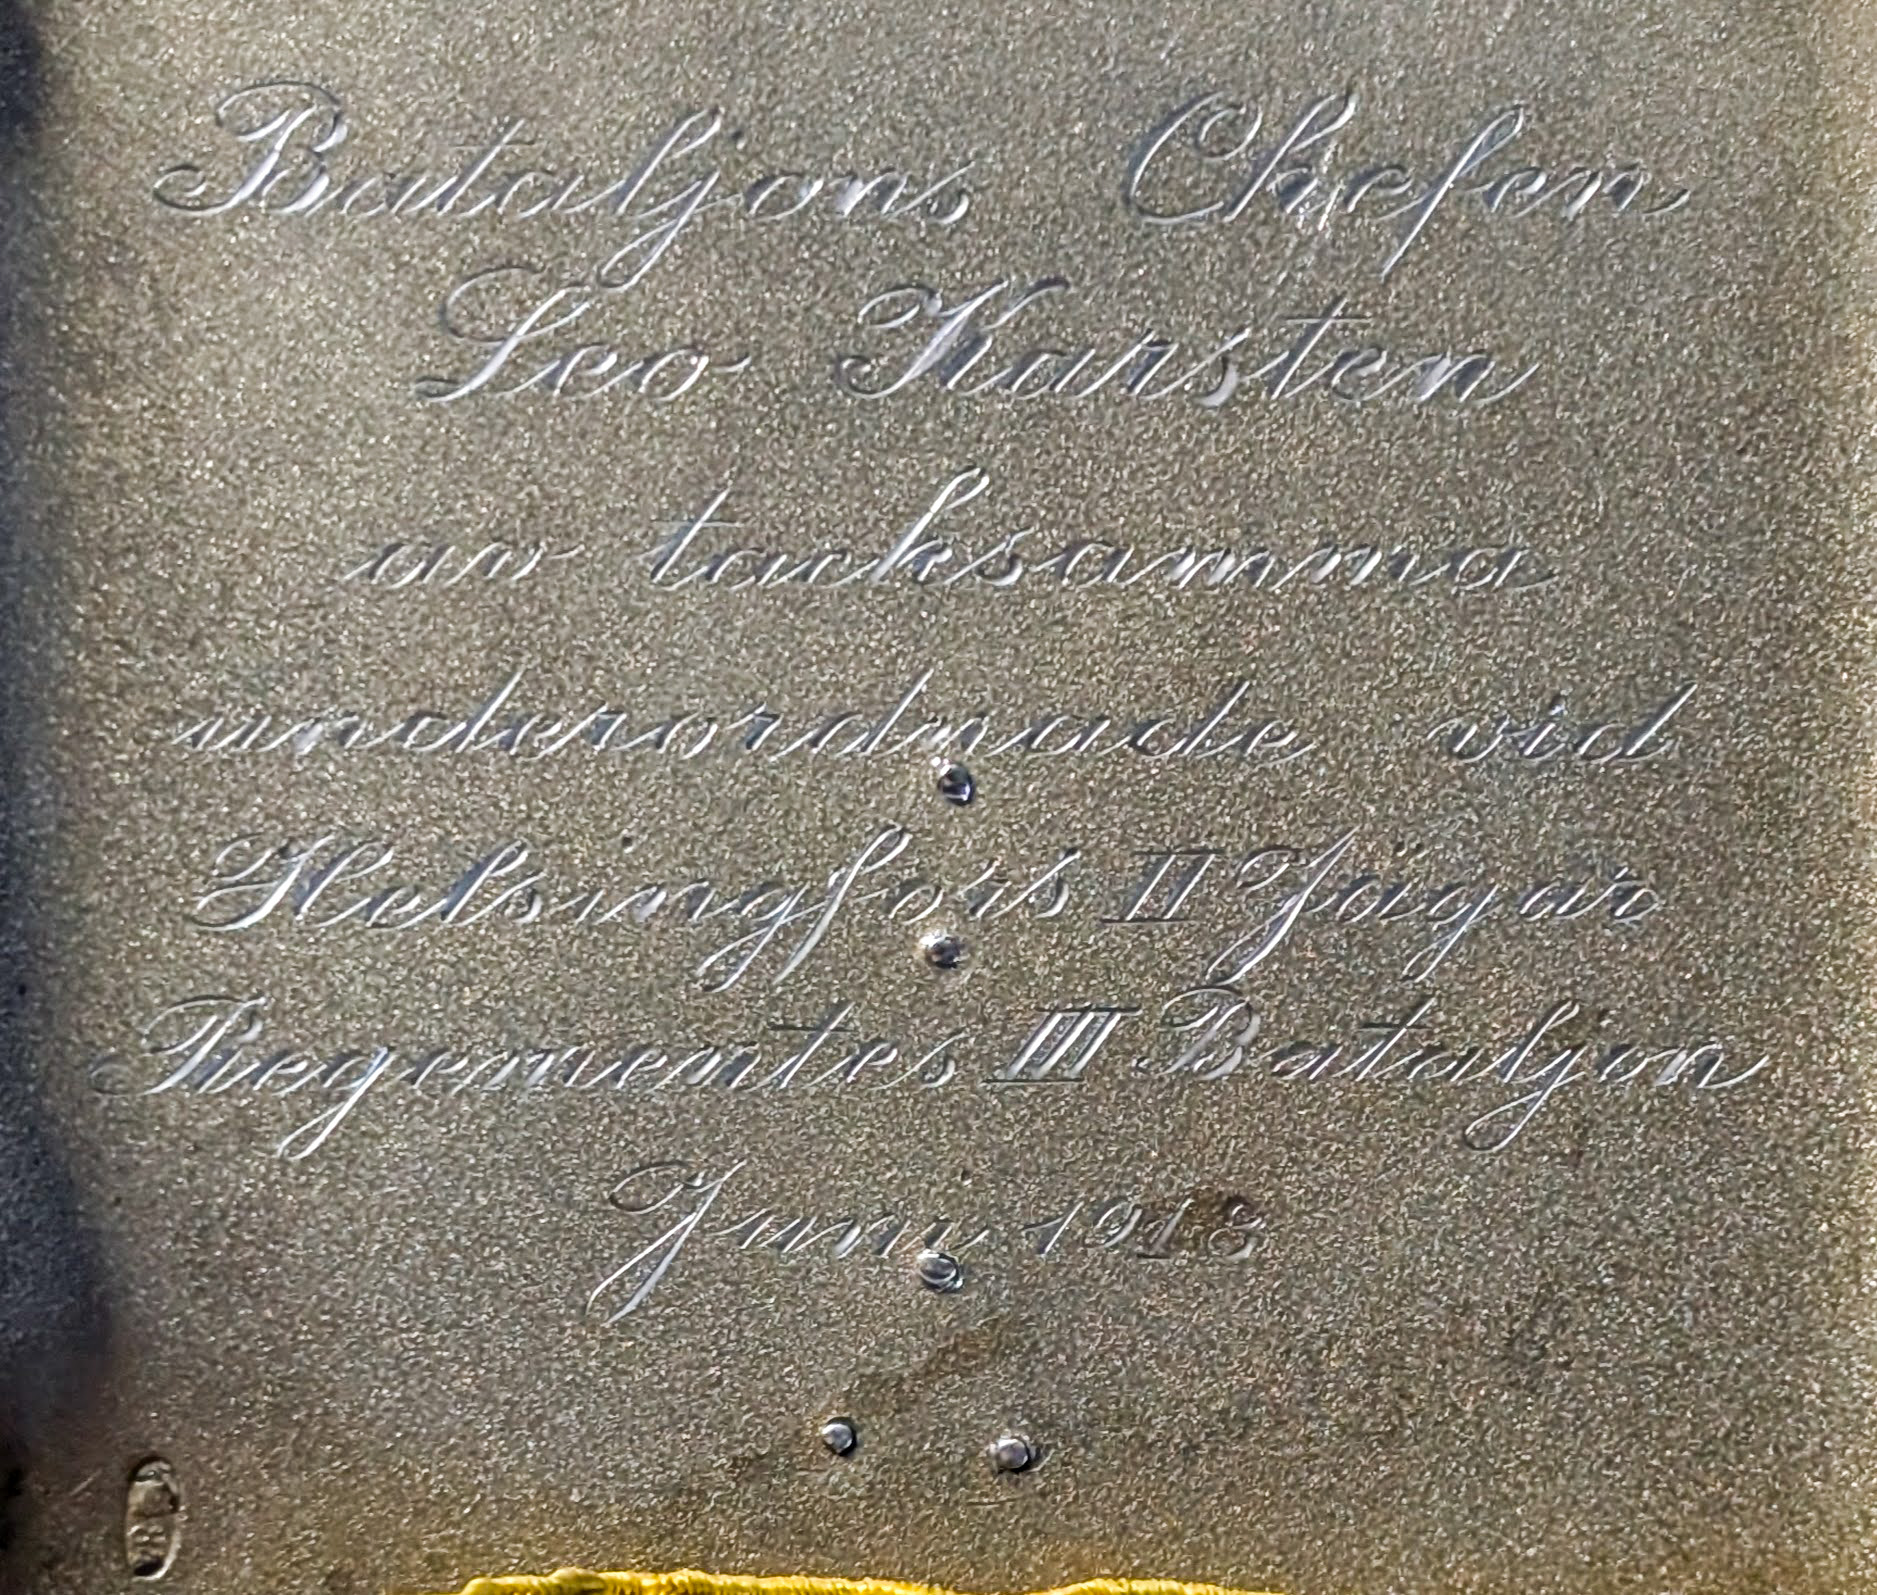 Bataljons Chefen
Leo Karsten
av tacksamma
underordnade vid
Helsingfors II Jägar
Regementes III Bataljon
Juni 1918